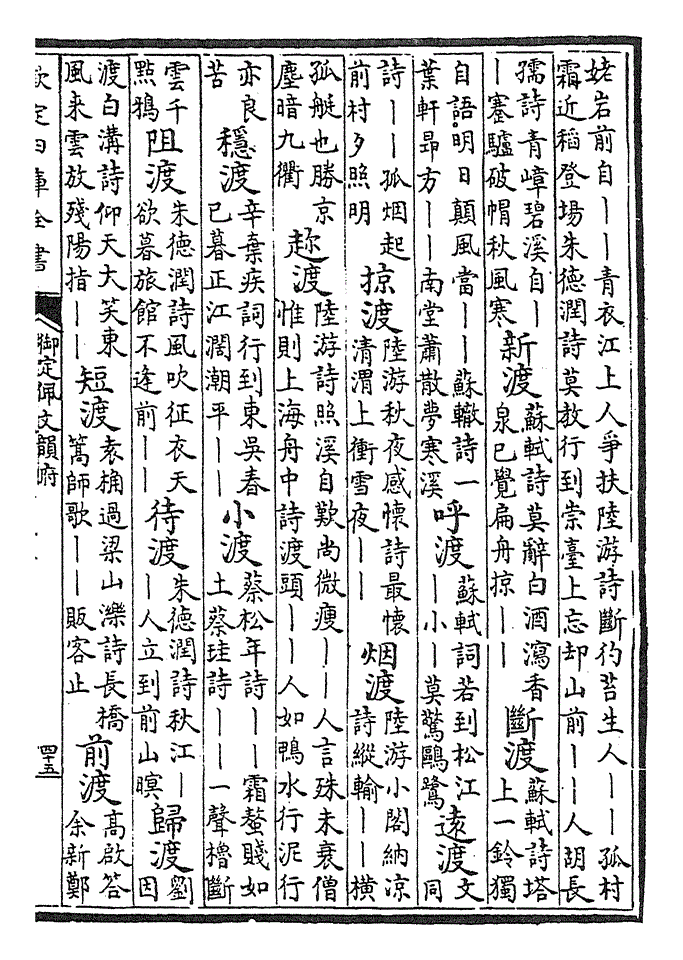 姥岩前自丨丨青衣江上人爭扶陸游詩斷彴苔生人丨丨孤村
霜近稻登場朱德潤詩莫教行到崇臺上忘却山前丨丨人胡長
孺詩青嶂碧溪自丨
丨蹇驢破帽秋風寒
新渡
蘇軾詩莫辭白酒瀉香
泉已覺扁舟掠丨丨
斷渡
蘇軾詩塔
上一鈴獨
自語明日顛風當丨丨蘇轍詩一
葉軒昻方丨丨南堂蕭散夢寒溪
呼渡
蘇軾詞若到松江
丨小丨莫驚鷗鷺
遠渡
文
同
詩丨丨孤烟起
前村夕照明
掠渡
陸游秋夜感懷詩最懷
清渭上衝雪夜丨丨
烟渡
陸游小閣納凉
詩縱輸丨丨横
孤艇也勝京
塵暗九衢
趂渡
陸游詩照溪自歎尚微痩丨丨人言殊未衰僧
惟則上海舟中詩渡頭丨丨人如鴨水行泥行
亦良
苦
穩渡
辛棄疾詞行到東吳春
已暮正江濶潮平丨丨
小渡
蔡松年詩丨丨霜螯賤如
土蔡珪詩丨丨丨一聲櫓斷
雲千
點鴉
阻渡
朱德潤詩風吹征衣天
欲暮旅館不逢前丨丨
待渡
朱德潤詩秋江丨
丨人立到前山暝
歸渡
劉
因
渡白溝詩仰天大笑東
風来雲放殘陽指丨丨
短渡
袁桷過梁山濼詩長橋
篙師歌丨丨販客止
前渡
高啟答
余新鄭
欽定四庫全書
御定佩文韻府
四十五